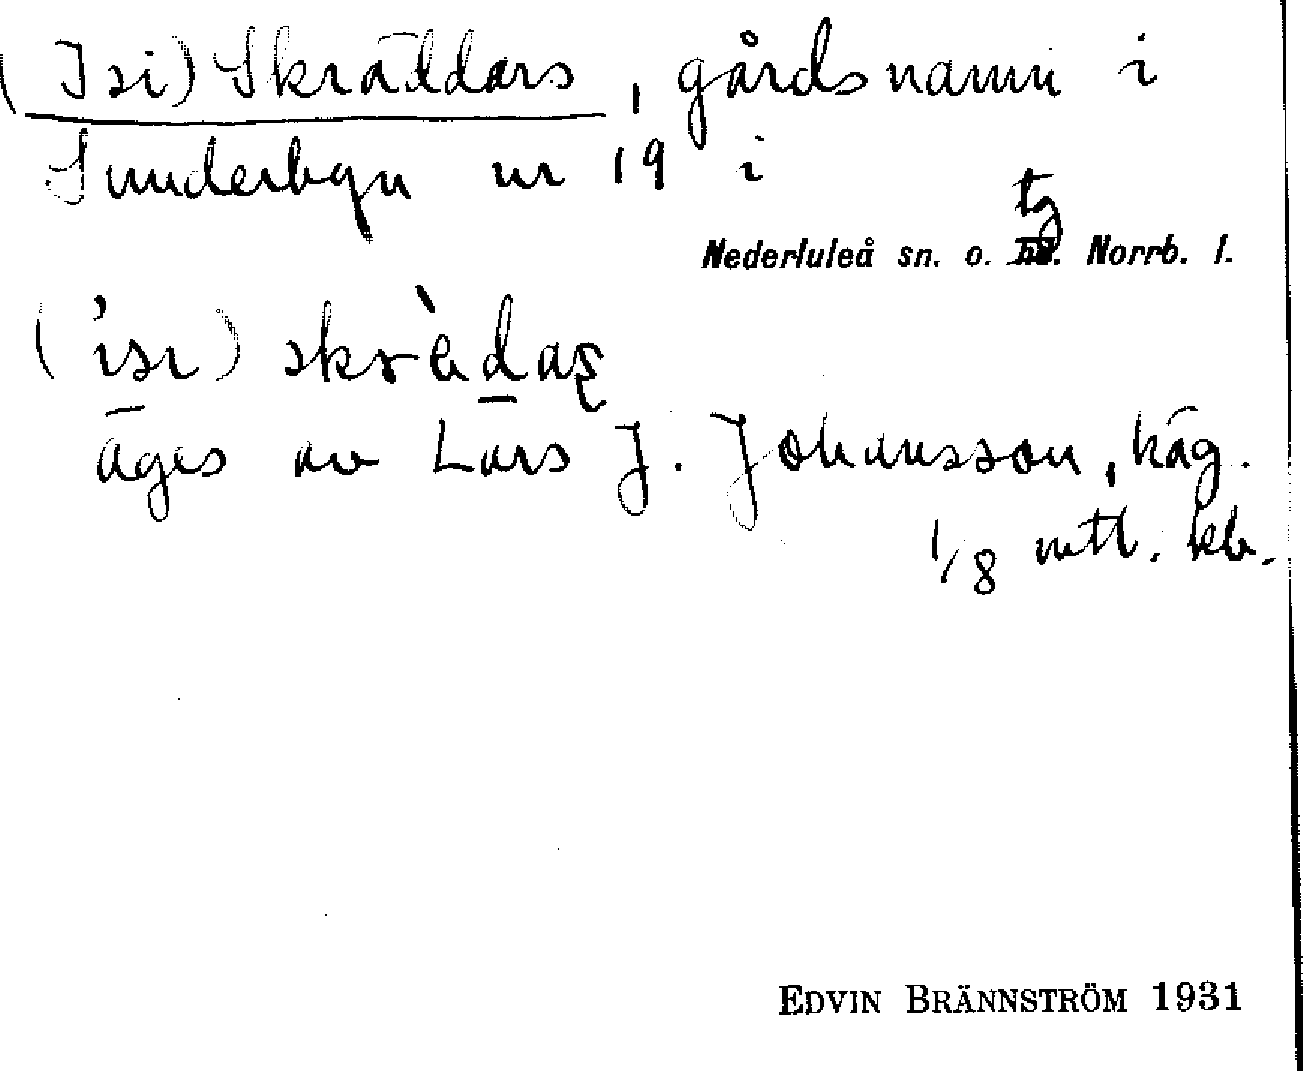 (Isi) Skräddars, gårdsnamn i
Sunderbyn nr 19 i
Nederluleå sn. o. tg. Norrb. l.
(ˈisi) skrὲdaʂ
äges av Lars J. Johansson, häg.
1/8 mtl. kb.
EDVIN BRÄNNSTRÖM 1931